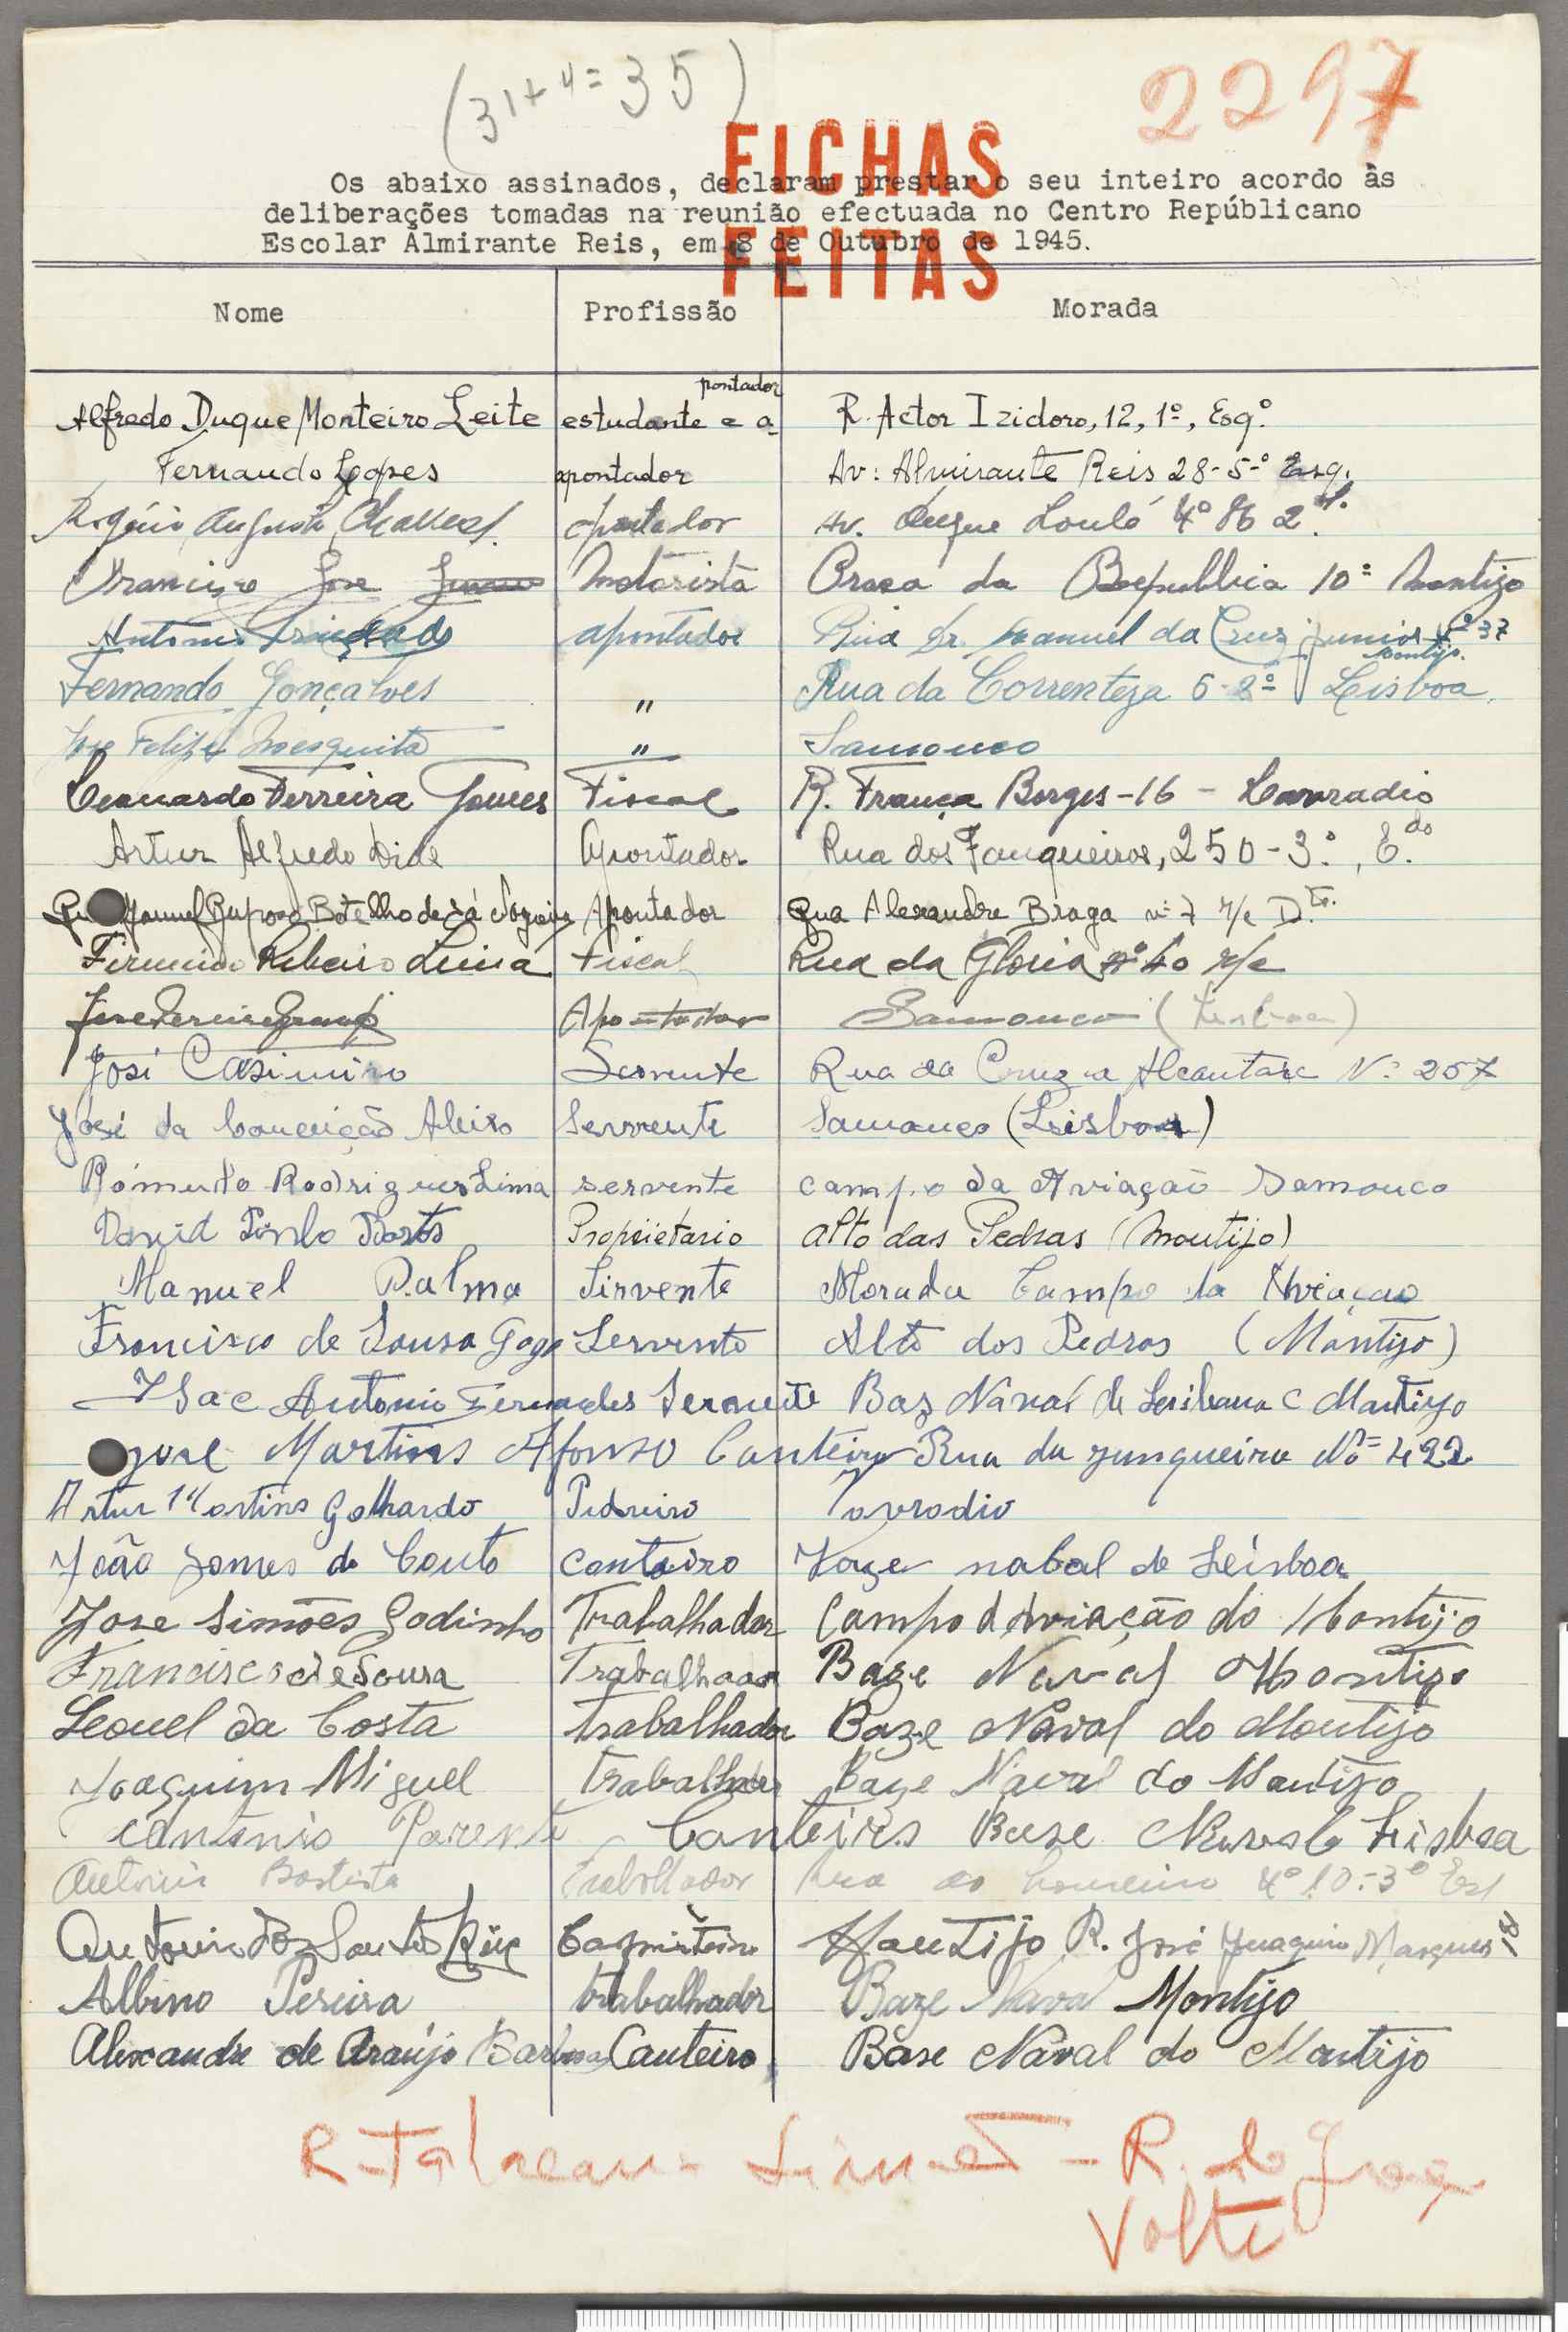 (31+4=35)
2297
FICHAS
FEITAS
Os abaixo assinados, declaram prestar o seu inteiro acordo às
deliberações tomadas na reunião efectuada no Centro Repúblicano
Escolar Almirante Reis, em 8 de Outubro de 1945.
Nome Profissão Morada
Alfredo Duque Monteiro Leite estudante e apontador R. Actor Izidoro, 12, 1º, Esqº
Fernando Lopes apontador Av: Almirante Reis 28-5-º Esq.
Rogério Augusto Chaves apontador Av. Duque Loulé
Francisco José Motorista Praça da Republica 10º Montijo
António Trindade apontador Rua Dr. Manuel da Cruz Junior nº 37 Montijo.
Fernando Gonçalves " Rua da Correnteza 6-2º Lisboa
José Felipe Mesquita " Samouco
Leonardo Ferreira Gomes Fiscal R. França Borges-16 - Lavradio
Artur Alfredo Dide Apontador Rua dos Fanqueiros, 250-3º, E.do
Manuel Raposo Botelho de Sá Nogueira Apontador Rua Alexandre Braga nº 7 r/c D.to.
Firmino Ribeiro Lima Fiscal Rua da Gloria nº 40 r/c
José Apontador Samouco (Lisboa)
José Casimiro Servente Rua da Cruz a Alcantara Nº 207
José da Conceição Aleixo Servente Samouco (Lisboa)
Rómulo Rodrigues Lima servente campo da Aviação Samouco
David Pinho Propiietario alto das Pedras (Montijo)
Manuel Palma Sirvente Morada Campo da Aviaçao
Francisco de Sousa Gago Servente Alto dos Pedras (Montijo)
Isac Antonio Fernandes Servente Baz Naval de Montijo
José Martins Afonso Canteiro Rua da junqueira Nº 422
Artur Martins Galhardo Pedreiro Lavradio
João Gomes do Couto canteiro nabal de Leisboa
Jose Simões Godinho Trabalhador Campo d Aviação do Montijo
Francisco de Sousa Trabalhador Baze Naval Montijo
Leonel da Costa trabalhador Baze Naval do Montijo
Joaquim Miguel Trabalhador Baze Naval do Montijo
António Parente Canteiro Base Naval Lisboa
António Batista Trabalhador Rua do 10-3º Esq
Antonio dos Santos Carpinteiro Montijo R. José Joaquim Marques 18
Albino Pereira trabalhador Baze Naval Montijo
Alexandre de Araújo Barbosa Canteiro Base Naval do Montijo
Volte